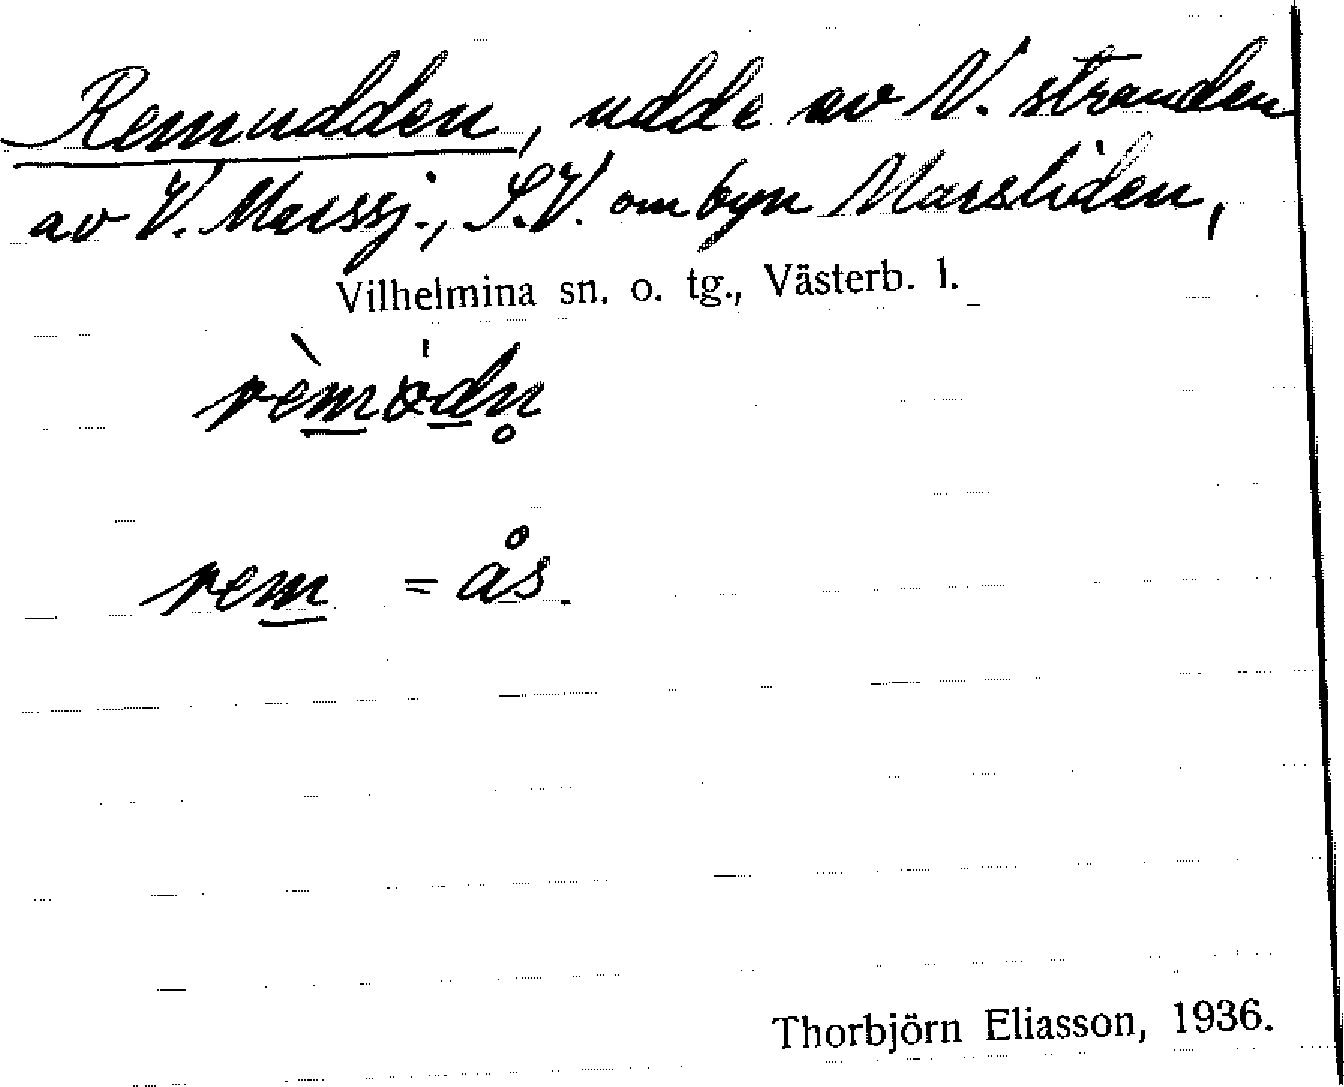 Remudden, udde av N. stranden
av V. Marssj., S.V. om byn Marsliden,
Vilhelmina sn. o. tg., Västerb. l.
rem = ås.
Thorbjörn Eliasson, 1936.